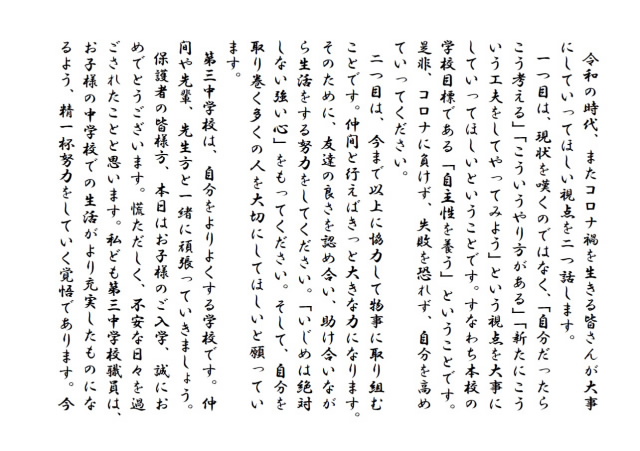 令和の時代、またコロナ禍を生きる皆さんが大事
にしていってほしい視点を二つ話します。
　一つ目は、現状を嘆くのではなく、「自分だったら
こう考える」「こういうやり方がある」「新たにこう
いう工夫をしてやってみよう」という視点を大事に
していってほしいということです。すなわち本校の
学校目標である「自主性を養う」ということです。
是非、コロナに負けず、失敗を恐れず、自分を高め
ていってください。
　二つ目は、今まで以上に協力して物事に取り組む
ことです。仲間と行えばきっと大きな力になります。
そのために、友達の良さを認め合い、助け合いなが
ら生活をする努力をしてください。「いじめは絶対
しない強い心」をもってください。そして、自分を
取り巻く多くの人を大切にしてほしいと願ってい
ます。
　第三中学校は、自分をよりよくする学校です。仲
間や先輩、先生方と一緒に頑張っていきましょう。
　保護者の皆様方、本日はお子様のご入学、誠にお
めでとうございます。慌ただしく、不安な日々を過
ごされたことと思います。私ども第三中学校職員は、
お子様の中学校での生活がより充実したものにな
るよう、精一杯努力をしていく覚悟であります。今